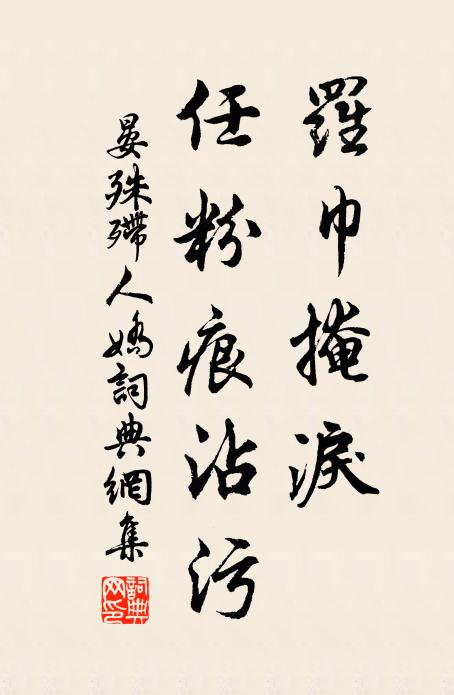 羅巾掩淚
任粉痕沾污
晏殊殢人嬌詞典網集
詞典网印